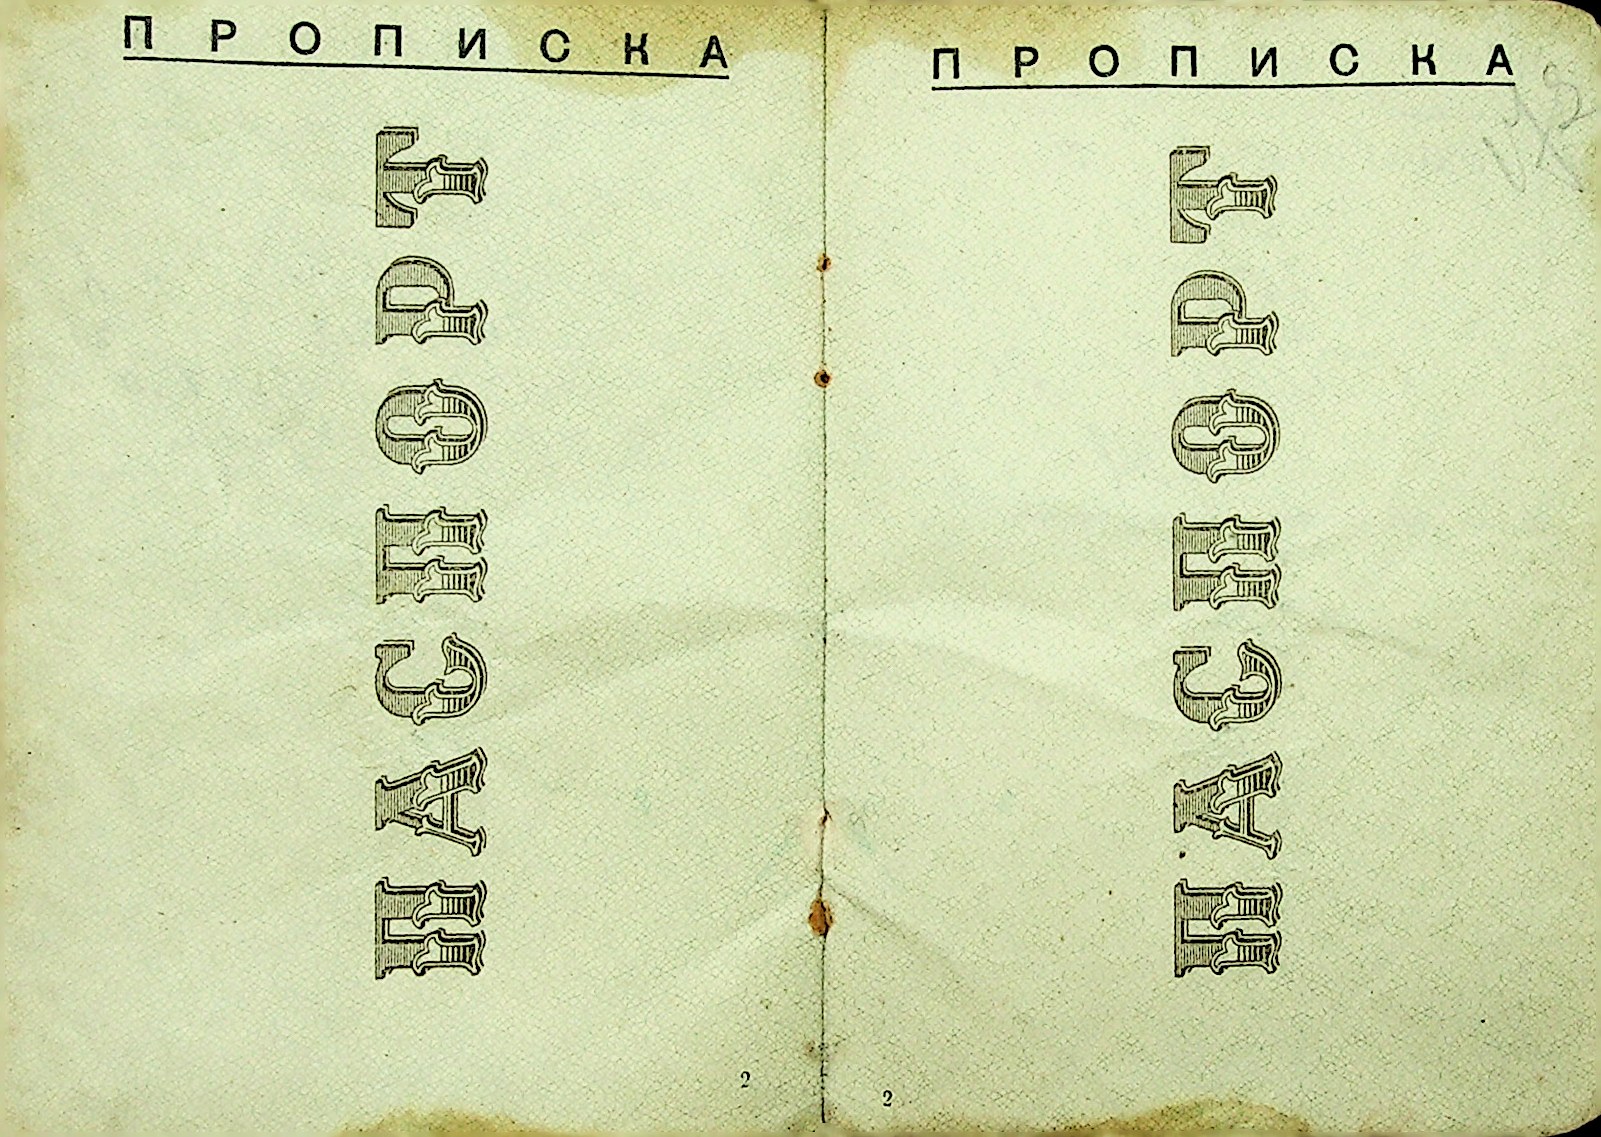 ПРОПИСКА
ПАСПОРТ
2
ПРОПИСКА
ПАСПОРТ
2